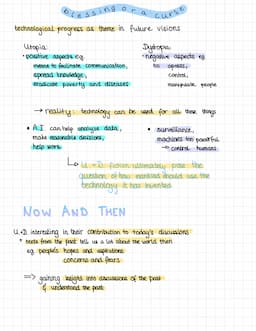 blessing or a curse
technological progress as theme in future visions
Utopia:
Dystopia:
• positive aspects e.g.
• negative aspects eg
means to facilitate communication,
to oppress,
spread knowledge,
control,
eradicate poverty and diseases
manipulate people
→ reality: technology can be used for all these things
• A.I. can help analyse data,
• surveillance,
make reasonable decisions,
machines too powerful
help work
→ control humans
U. + D. fiction ultimately pose the
question of how mankind should use the
technology it has invented
NOW AND THEN
U. + D. interesting in their contribution to today's discussions
• texts from the past tell us a lot about the world then
e.g. people's hopes and aspirations
concerns and fears
⇒ gaining insight into discussions of the past
& understand the past